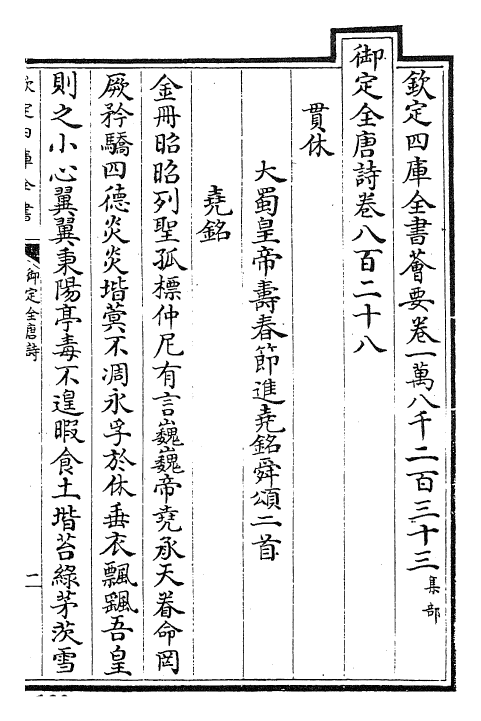 欽定四庫全書薈要卷一萬八千二百三十三 集部
御定全唐詩卷八百二十八
貫休
大蜀皇帝壽春節進堯銘舜頌二首
堯銘
金冊昭昭列聖孤標仲尼有言巍巍帝堯承天眷命罔
厥矜驕四德炎炎堦蓂不凋永孚於休垂衣飄飖吾皇
則之小心翼翼秉陽亭毒不遑暇食土堦苔綠茅茨雪
欽定四庫全書
御定全唐詩